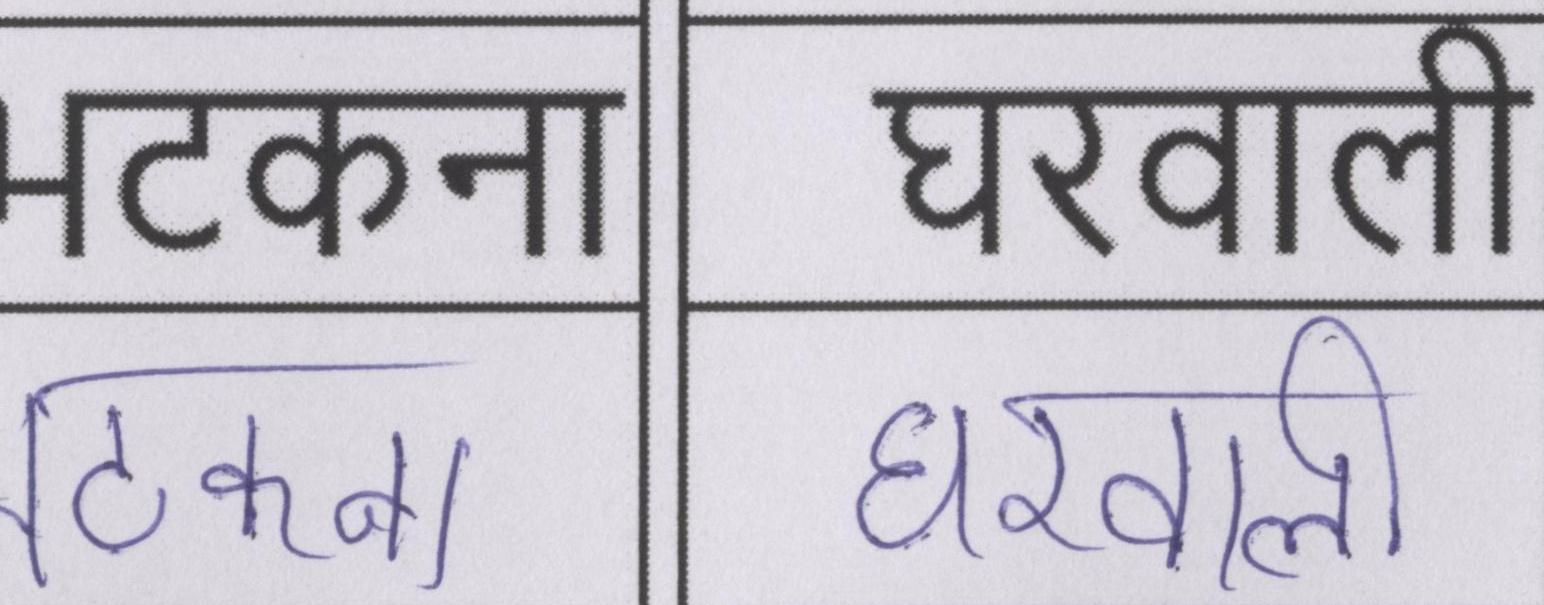 भटकना घरवाली
भटकना घरवाली